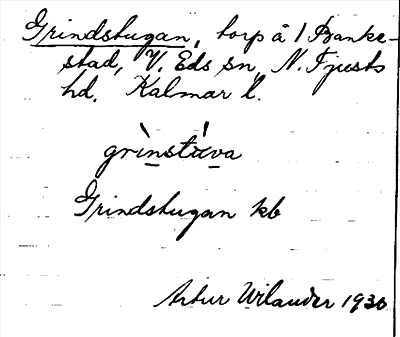 Grindstugan, torp å 1 Banke-
stad, V. Eds sn, N. Tjusts
hd. Kalmar l.
grìnstúva
Grindstugan kb
Artur Wilander 1930